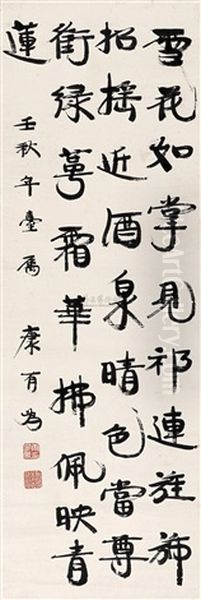 雪花如掌見祁連旌旆
招搖近酒泉晴色當尊
銜綠萼霜華拂佩映青
蓮
壬秋年臺屬 康有為